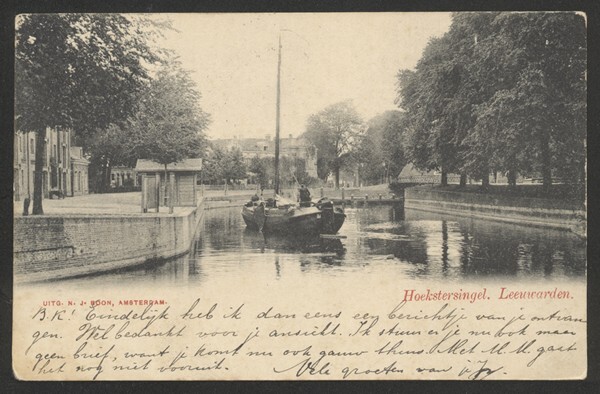 Hoekstersingel. Leeuwarden.
UITG. N. J. BOON, AMSTERDAM.
B.K! Eindelijk heb ik dan eens een berichtje van je ontvan
gen. Wel bedankt voor je ansicht. Ik stuur er je nu ook maar
geen brief, want je komt nu ook gauw thuis. Met M. M. gaat
het nog niet vooruit. Vele groeten van je